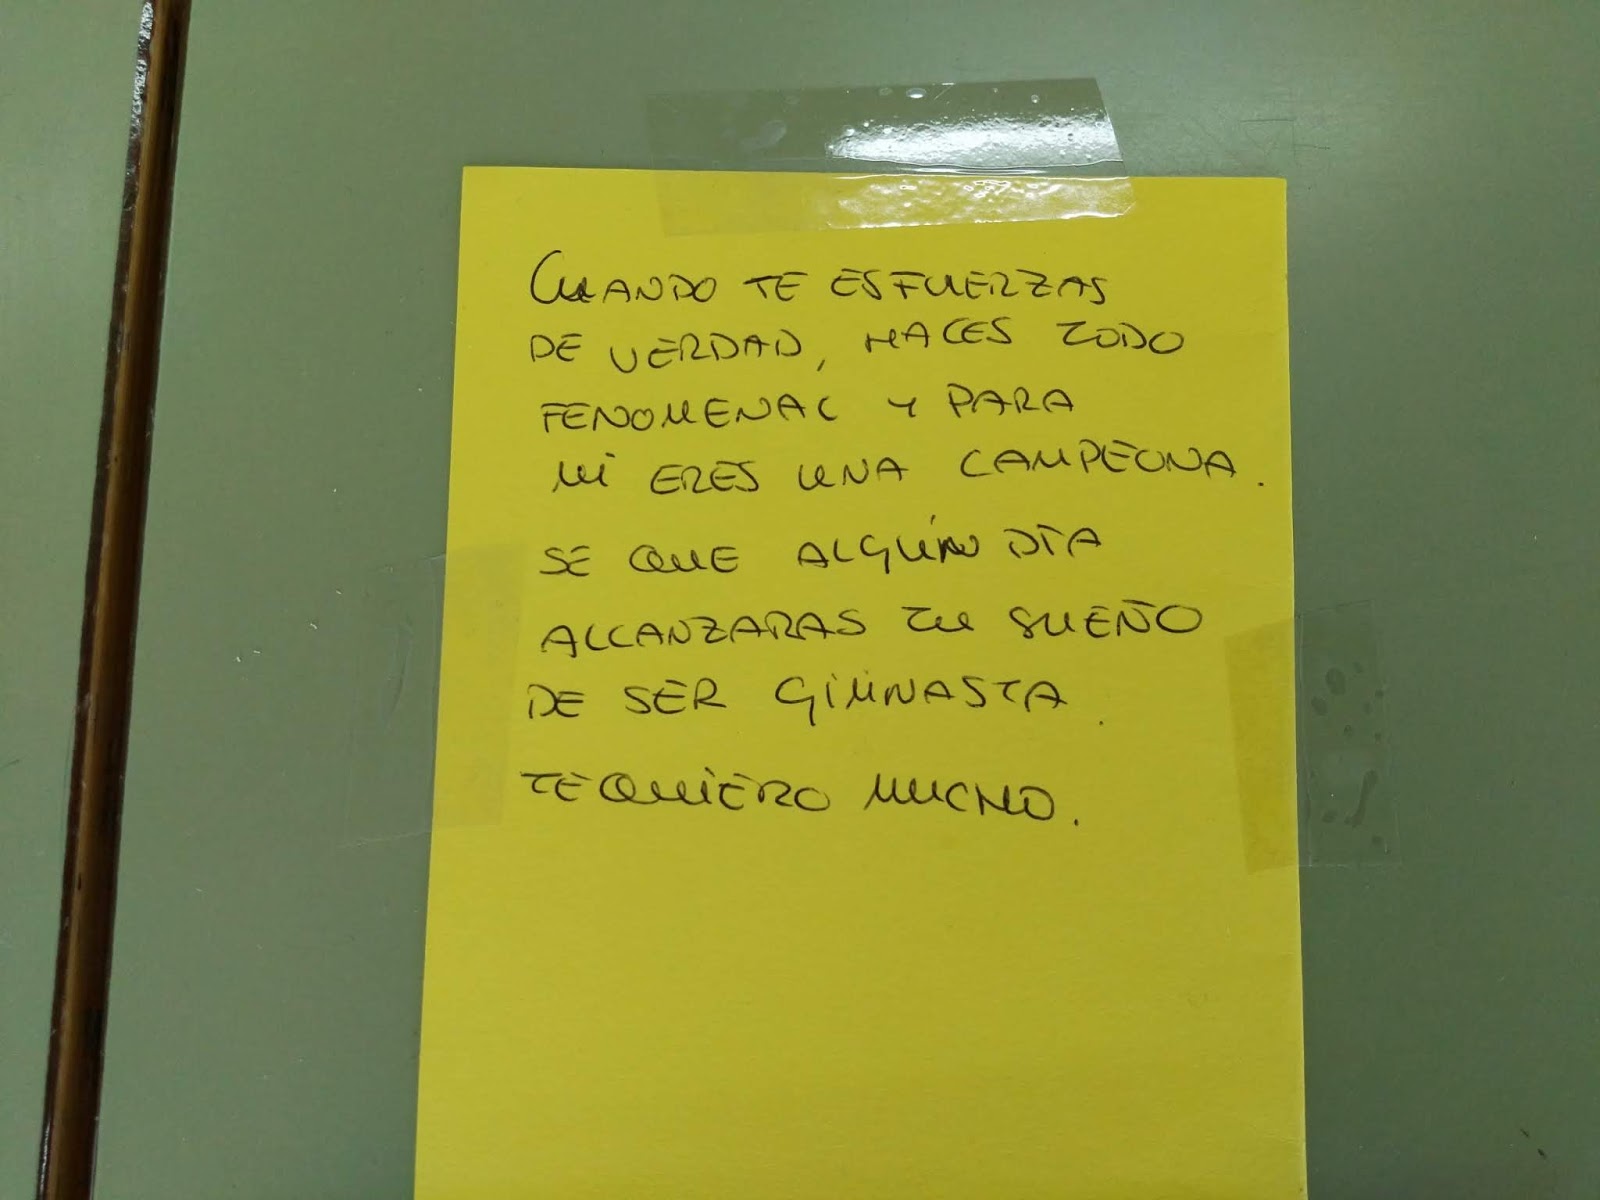 CUANDO TE ESFUERZAS
DE VERDAD, HACES TODO
FENOMENAL Y PARA
MI ERES UNA CAMPEONA.
SE QUE ALGÚN DÍA
ALCANZARAS TU SUEÑO
DE SER GIMNASTA.
TE QUIERO MUCHO.